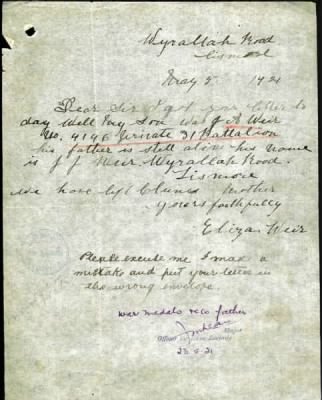 Wyrallah Road
Lismore
May 2 1921
Dear Sir I got your letter to
day Well My Son was J A Weir
No. 4146 Private 31 Battalion
his father is still alive his name
is J J Weir Wyrallah Road.
Lismore
we have left Clunes Mother
yours faithfully
Eliza Weir
Please excuse me I max a
mistake and put your letter in
the wrong envelope.
war medals reco father
Major
Officer
23.5.21